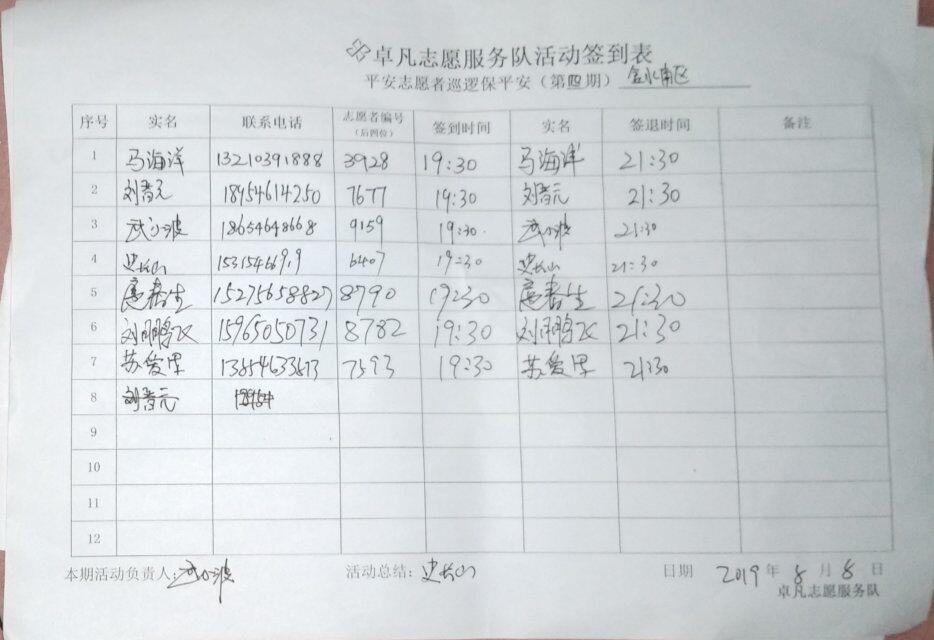 卓凡志愿服务队活动签到表
平安志愿者巡逻保平安（第四期） 金水南区
序号 实名 联系电话 志愿者编号（后四位） 签到时间 实名 签退时间 备注
1 马海洋 13210391888 3928 19:30 马海洋 21:30
2 刘晋元 18954614250 7677 19:30 刘晋元 21:30
3 武小波 18654648668 9159 19:30 武小波 21:30
4 史长山 6407 19:30 史长山 21:30
5 15275658827 8790 19:30 21:30
6 刘鹏飞 15965050731 8782 19:30 刘鹏飞 21:30
7 苏爱军 7593 19:30 苏爱军 21:30
8 刘晋元
9
10
11
12
本期活动负责人：武小波 活动总结：史长山 日期 2019年8月8日
卓凡志愿服务队